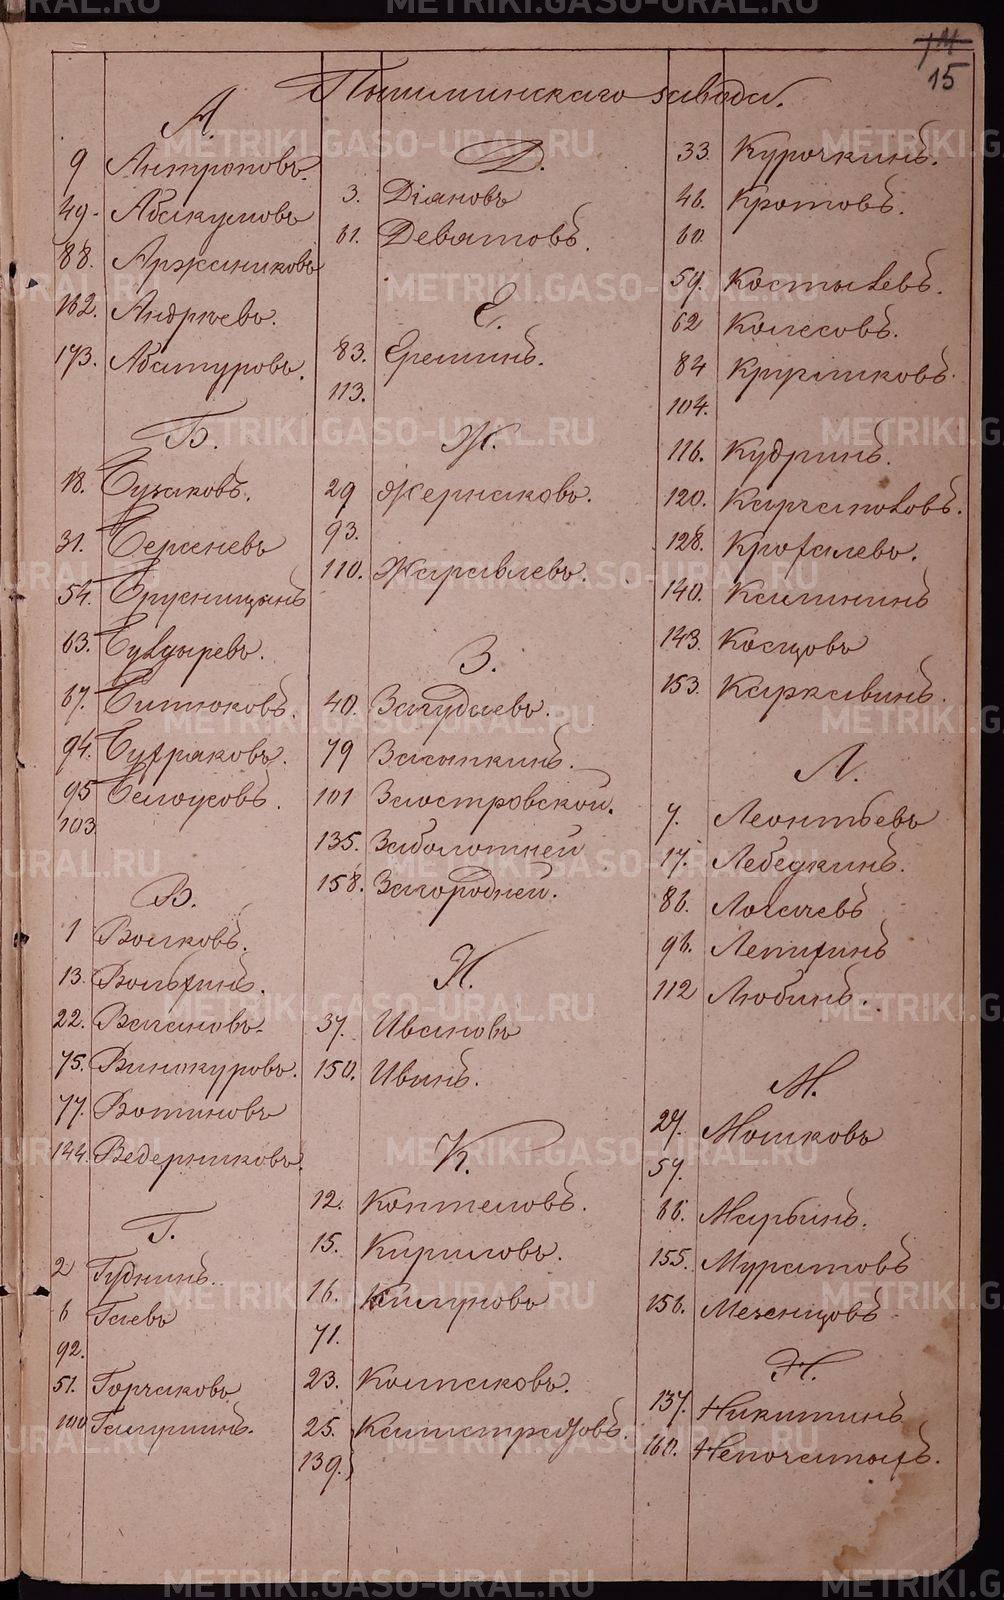 14
15
Пышминскаго завода.
А.
9 Антроповъ.
49. Абакумовъ
88. Аржаниковъ
162. Андреевъ.
173. Абатуровъ.
Б.
18. Бузаковъ.
31. Берсеневъ
54. Брусницынъ
63. Булдыревъ.
67. Битюковъ.
94. Бухраковъ.
95 Белоусовъ.
103
В.
1 Волковъ.
13. Вольхинъ.
22. Вагановъ.
75. Винокуровъ.
77. Вотиновъ
144. Ведерниковъ.
Г.
2 Гудкинъ.
6 Гаевъ
92.
51. Горчаковъ
100 Галушинъ.
Д.
3. Діановъ
61. Девятовъ.
Е.
83. Ереминъ.
113.
Ж.
29 Жернаковъ.
93.
110. Журавлевъ.
З.
40. Загудаевъ.
79 Засыпкинъ.
101 Заостровской.
135. Заболотней
158. Загородней.
И.
37. Ивановъ
150. Ивинъ.
К.
12. Коптеловъ.
15. Кириловъ.
16. Калуговъ
71.
23. Колпаковъ.
25. Калистратовъ.
139.
33. Курочкинъ.
46. Кротовъ.
60
59. Костылевъ.
62 Колесовъ.
84 Кругликовъ.
104.
116. Кудринъ.
120. Карчаповъ.
128. Крохалевъ.
140. Калининъ
143. Косцовъ
153. Каркавинъ.
Л.
7. Леонтьевъ
17. Лебедкинъ.
86. Логачевъ
96. Лепихинъ
112 Любинъ.
М.
27. Мошковъ
57.
66. Марьинъ.
155. Муратовъ
156. Мезенцовъ
Н.
137. Никитинъ
160. Непочатыхъ.
METRIKI.GASO-URAL.RU